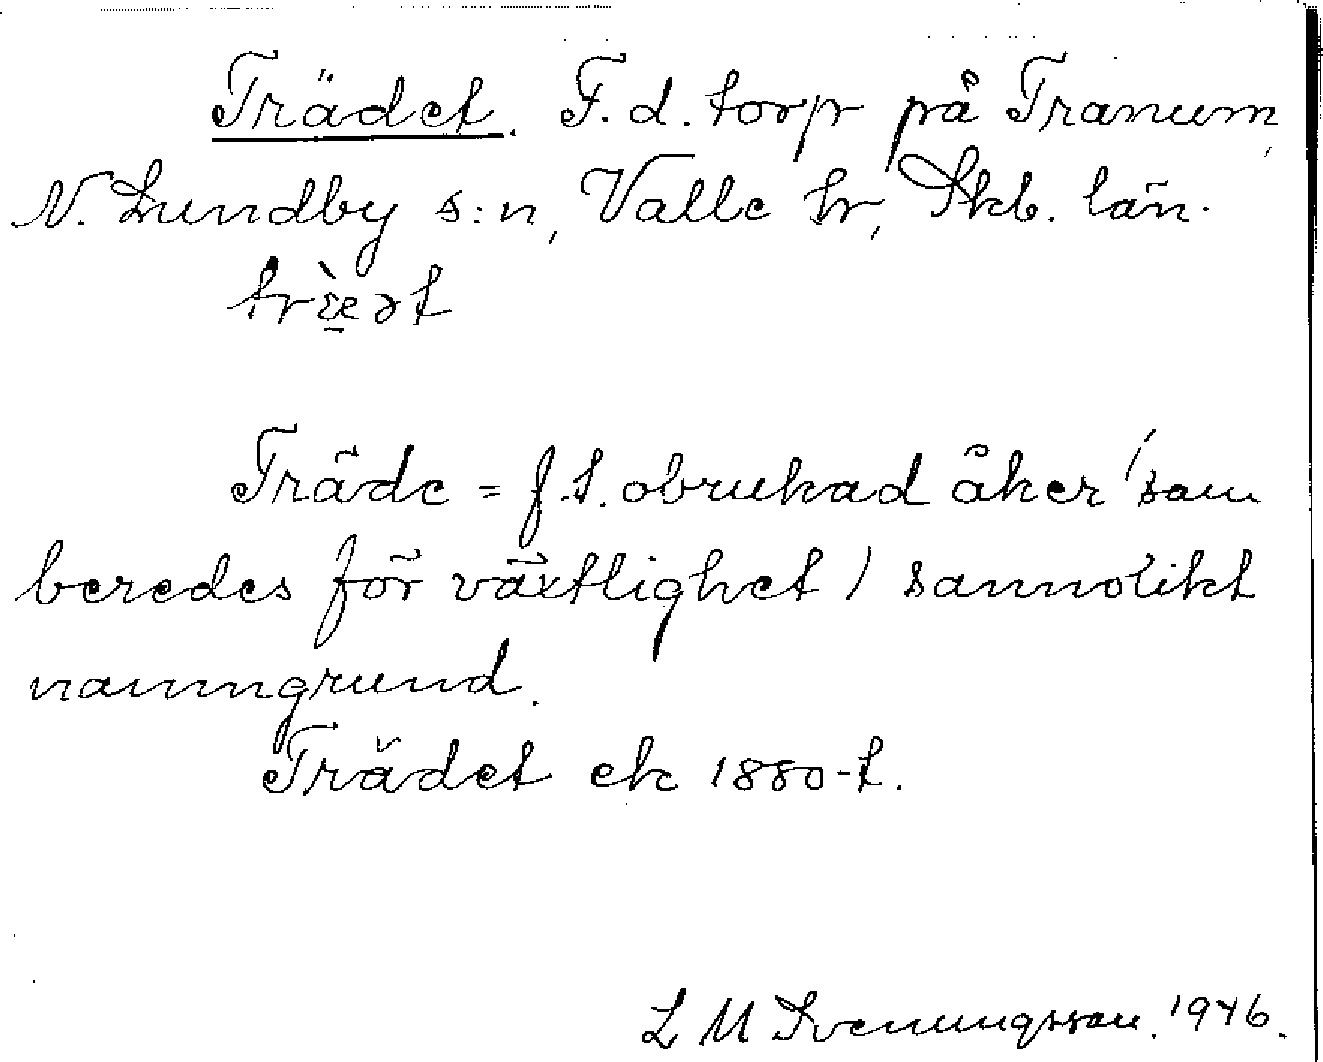 Trädet. F.d. torp på Tranum,
N. Lundby s:n, Valle hr, Skb. län.
træ̀ət
Träde = f.t. obrukad åker (som
beredes för växtlighet) sannolikt
namngrund.
Trädet ek 1880-t.
L M Svenungsson. 1946.